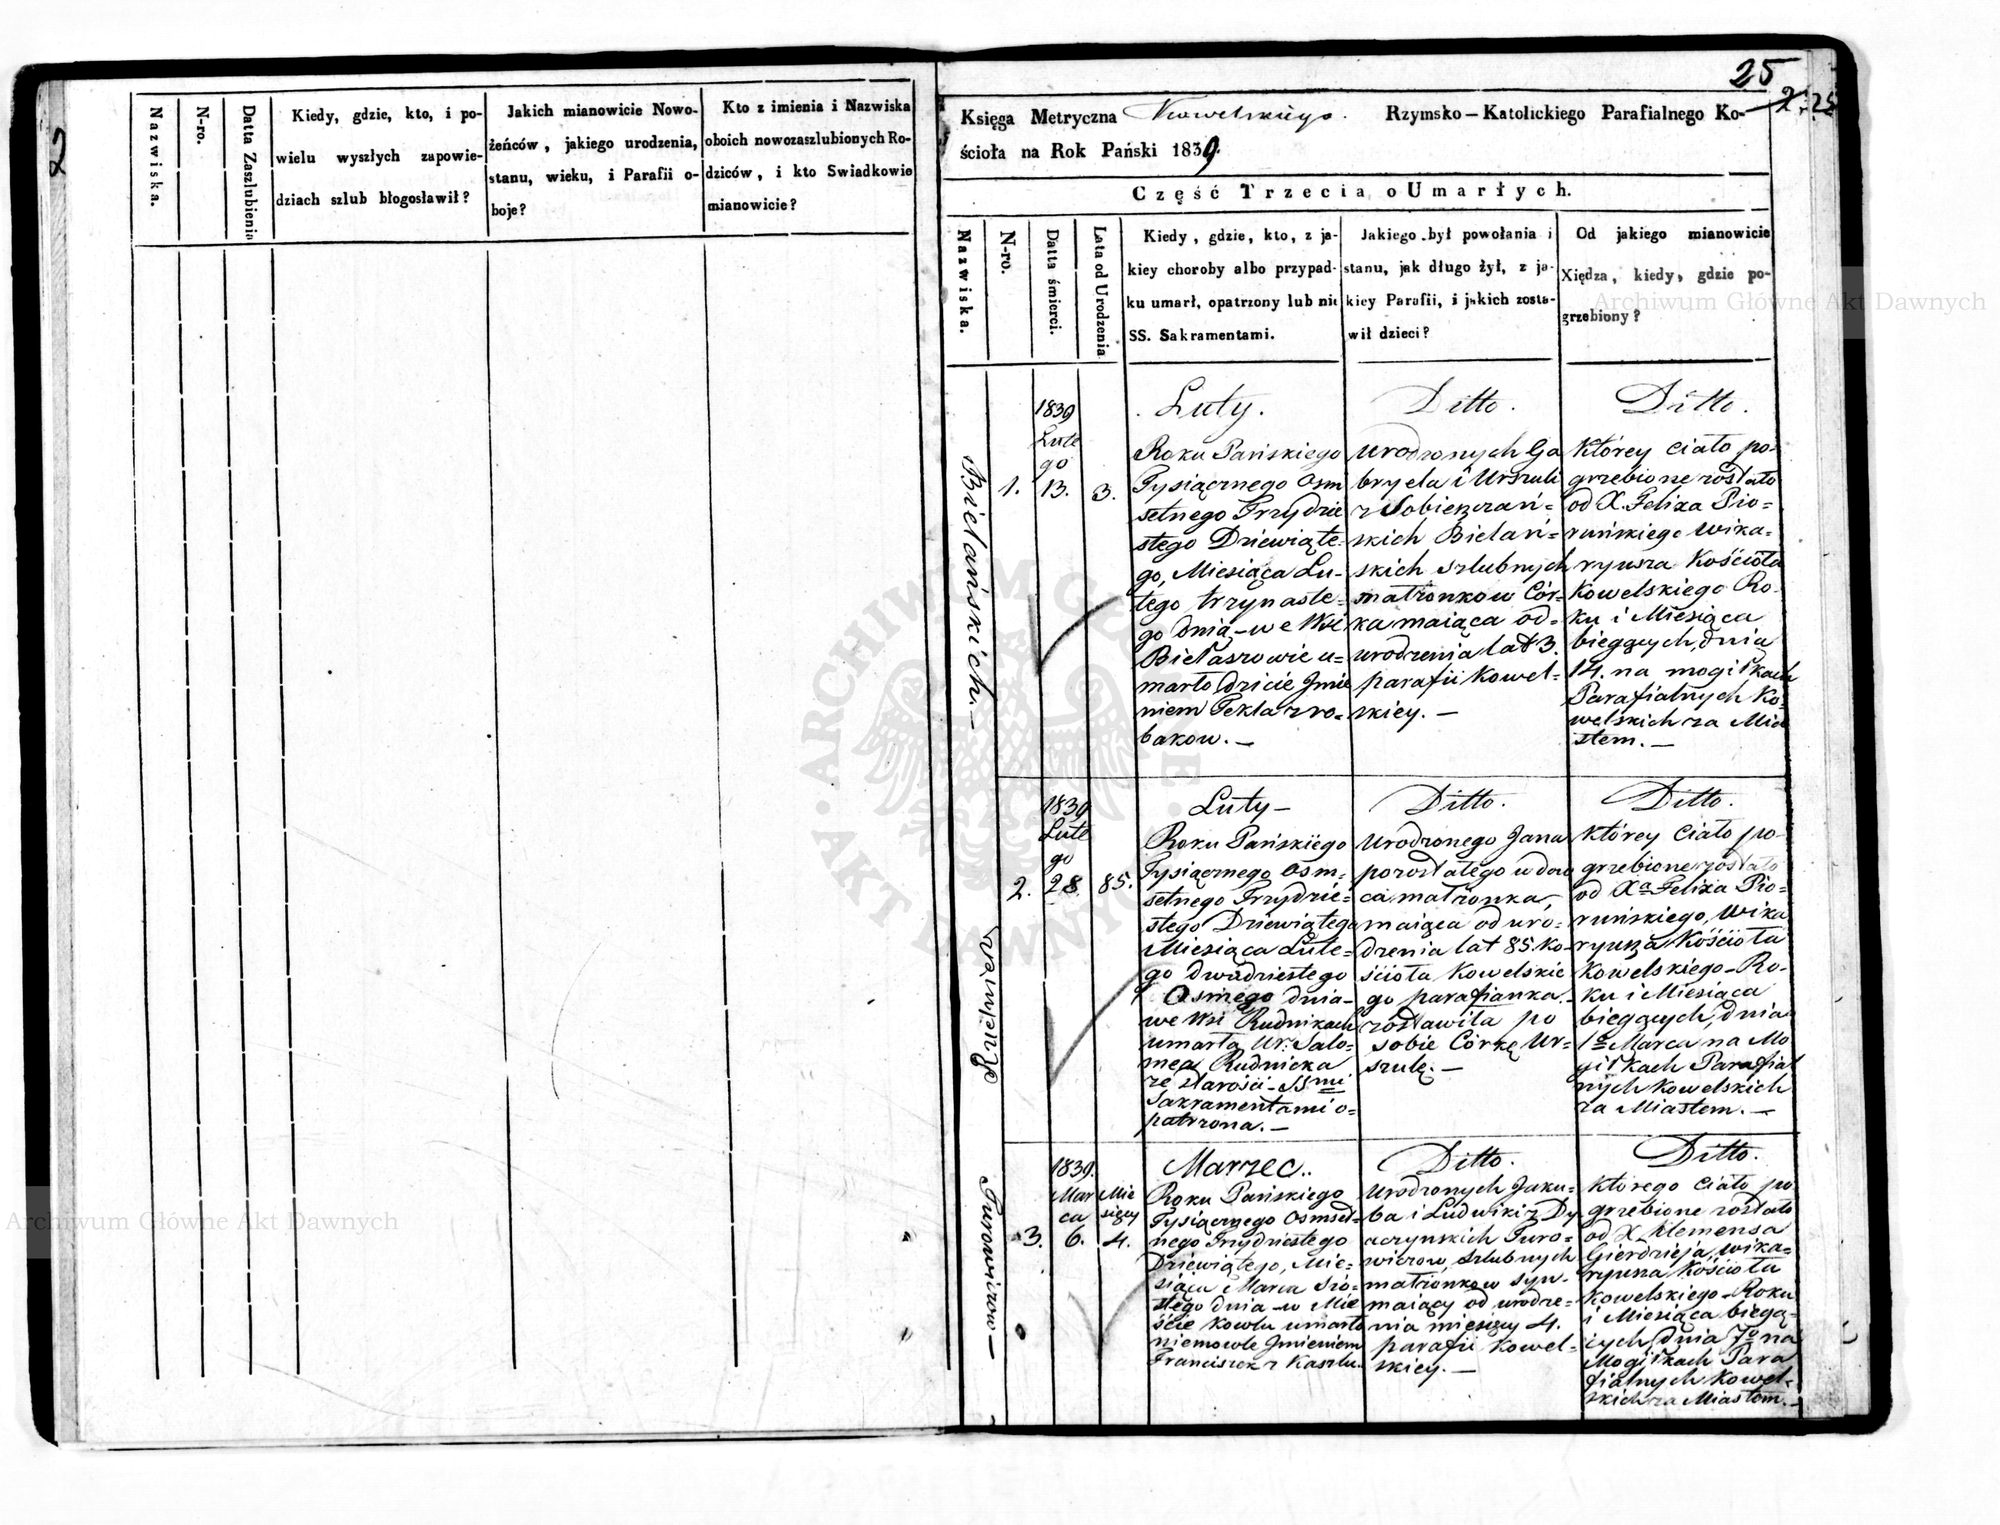 2
Nazwiska.
N-ro.
Datta Zaszlubienia
Kiedy, gdzie, kto, i po-
wielu wyszłych zapowie-
dziach szlub błogosławił?
Jakich mianowicie Nowo-
żeńców, jakiego urodzenia,
stanu, wieku, i Parafii o-
boje?
Kto z imienia i Nazwiska
oboich nowozaszlubionych Ro-
dziców, i kto Swiadkowie
mianowicie?
25
2.
25
Księga Metryczna Kowelskiego. Rzymsko-Katolickiego Parafialnego Ko-
ścioła na Rok Pański 1839.
Część Trzecia o Umarłych.
Nazwiska.
N-ro.
Datta śmierci.
Lata od Urodzenia
Kiedy, gdzie, kto, z ja-
kiey choroby albo przypad-
ku umarł, opatrzony lub nie
SS. Sakramentami.
Jakiego był powołania i
stanu, jak długo żył, z ja-
kiey Parafii, i jakich zosta-
wił dzieci?
Od jakiego mianowicie
Xiędza, kiedy, gdzie po-
grzebiony?
Bielańskich.—
1.
1839
Lute
go
13.
3.
Luty.
Roku Pańskiego
Tysiącznego Osm
setnego Trzydzie
stego Dziewiąte-
go, Miesiąca Lu-
tego trzynaste-
go dnia – we Wsi
Bielaszowie u=
marło dzicie Jmie
niem Tekla z ro=
bakow. —
Ditto.
Urodzonych Ga
bryela i Urszuli
z Sobieszczań=
skich Bielań=
skich szlubnych
małżonkow Cór=
ka maiąca od=
urodzenia lat 3.
parafii Kowel=
skiey. —
Ditto.
Którey ciało po=
grzebione zostało
od X. Felixa Pio=
ruńskiego Wika=
ryusza Kościoła
Kowelskiego Ro-
ku i Miesiąca
bieggcych, dnia
14. na mogiłkach
Parafialnych Ko-
welskich za Mia
stem. —
2.
1839
Lute
go
28
85.
Luty —
Roku Pańskiego
Tysiącznego Osm=
setnego Trzydzie=
stego Dziewiątego
Miesiąca Lute=
go dwudziestego
Osmego dnia –
we Wsi Rudnikach
umarła Ur: Salo=
mea Rudnicka
ze starości – SSmi
Sakramentami o=
patrzona. —
Ditto.
Urodzonego Jana
pozostałego wdow
ca małżonka,
maiąca od uro=
dzenia lat 85. Ko=
ścioła Kowelskie
go parafianka.–
zostawiła po
sobie Córkę Ur=
szulę. —
Ditto.
Którey Ciało po-
grzebione zostało
od Xa Felixa Pio=
ruńskiego, Wika
ryusza Kościoła
Kowelskiego – Ro-
ku i Miesiąca
bieggcych, dnia
1o Marca na Mo
giłkach Parafial
nych Kowelskich
za Miastem. —
Turowiczow —
3.
1839.
Mar
ca
6.
Mie
sięcy
4.
Marzec.
Roku Pańskiego
Tysiącznego Osmset=
nego Trzydziestego
Dziewiątego, Mie=
siąca Marca szó=
stego dnia – w Mie
ście Kowlu umarło
niemowle Jmieniem
Franciszek z Kaszlu.
Ditto.
Urodzonych Jaku=
ba i Ludwiki z Dy
aczynskich Turo=
wiczow, szlubnych
małżonkow syn-
maiący od urodze=
nia miesięcy 4.
parafii Kowel=
skiey. —
Ditto.
Którego ciało po
grzebione zostało
od X. Klemensa
Gierdzieja, wika=
ryusza Kościoła
Kowelskiego – Roku
i Miesiąca biegą=
cych, dnia 7o na
Mogiłkach Para
fialnych Kowel=
skich za Miastem. —
Archiwum Główne Akt Dawnych
Archiwum Główne Akt Dawnych
ARCHIWUM GŁÓWNE AKT DAWNYCH